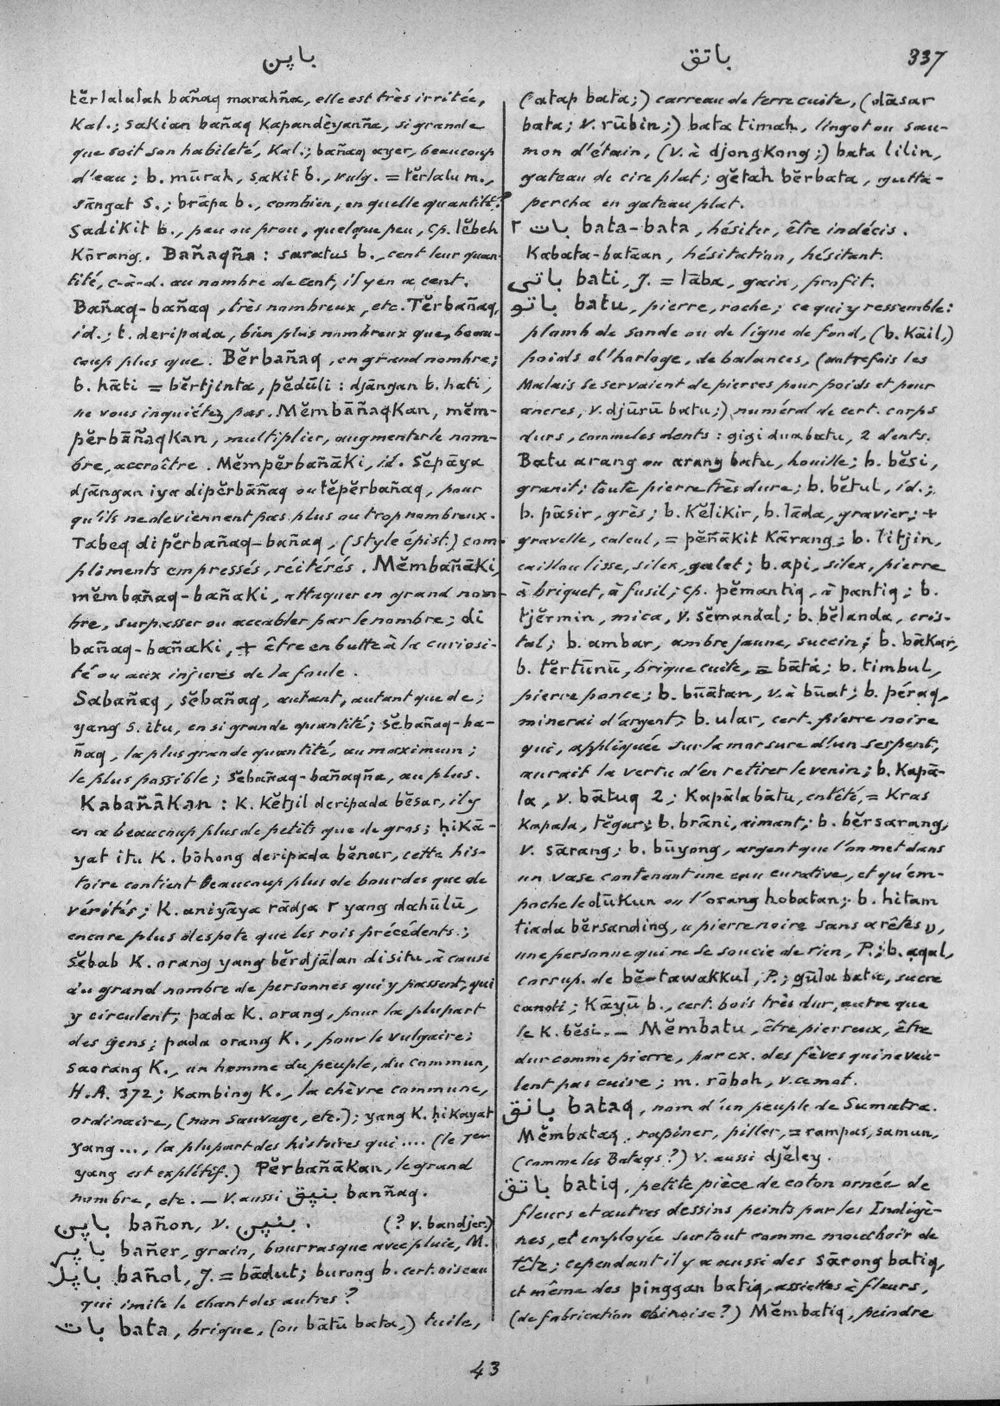 باپن
باتق
337
tĕrlalulah bañaq marahña, elle est très irritée,
Kal.; saKian bañaq Kapandèyanña, si grande
que soit son habileté, Kal.; bañaq ayer, beaucoup
d'eau; b. mūrah, saKit b., vulg. = tĕrlalu m.,
sāngat s.; brāpa b., combien, en quelle quantité?
SadiKit b., peu ou prou, quelque peu, cp. lĕbeh
Kōrang. Bañaqña: saratus b., cent leur quan-
tité, c-à-d. au nombre de cent, il y en a cent.
Bañaq-bañaq, très nombreux, etc. Tĕrbañaq,
id.; t. deripada, bien plus nombreux que, beau-
coup plus que. Bĕrbañaq, en grand nombre;
b. hāti = bĕrtjinta, pĕdūli: djāngan b. hati,
ne vous inquiétez pas. MĕmbāñaqKan, mĕm-
pĕrbāñaqKan, multiplier, augmenter le nom-
bre, accroître. MĕmpĕrbañāKi, id. Sĕpāya
djāngan iya dipĕrbāñaq ou tĕpĕrbañaq, pour
qu'ils ne deviennent pas plus ou trop nombreux.
Tabeq dipĕrbañaq-bañaq, (style épist.) com-
pliments empressés, réitérés. MĕmbañāKi,
mĕmbañaq-bañaKi, attaquer en grand nom-
bre, surpasser ou accabler par le nombre; di
bañaq-bañaKi, + être en butte à la curiosi-
té ou aux injures de la foule.
Sabañaq, sĕbañaq, autant, autant que de;
yang s. itu, en si grande quantité; sĕbañaq-ba-
ñaq, la plus grande quantité, au maximum;
le plus possible; sĕbañaq-bañaqña, au plus.
KabañāKan: K. Kĕtjil deripada bĕsar, il y
en a beaucoup plus de petits que de gros; ḥiKā-
yat itu K. bōhong deripada bĕnar, cette his-
toire contient beaucoup plus de bourdes que de
vérités; K. aniyāya rādja r yang dahūlū,
encore plus despote que les rois précédents;
sĕbab K. orang yang bĕrdjālan disitu, à cause
du grand nombre de personnes qui y passent, qui
y circulent; pada K. orang, pour la plupart
des gens; pada orang K., pour le vulgaire;
saorang K., un homme du peuple, du commun,
H.A. 372; Kambing K., la chèvre commune,
ordinaire, (non sauvage, etc.); yang K. ḥiKayat
yang..., la plupart des histoires qui.... (le 1er
yang est explétif.) PĕrbañāKan, le grand
nombre, etc. — V. aussi بنيق bannaq.
باپن bañon, v. بنپن. (? v. bandjer.)
باپر bañer, grain, bourrasque avec pluie, M.
باپل bañol, J. = bādut; burong b. cert. oiseau
qui imite le chant des autres?
بات bata, brique, (ou bātū bata,) tuile,
(atap bata;) carreau de terre cuite, (dāsar
bata; v. rūbin;) bata timah, lingot ou sau-
mon d'étain, (v. à djongKong;) bata lilin,
gateau de cire plat; gĕtah bĕrbata, gutta-
percha en gateau plat.
بات ٢ bata-bata, hésiter, être indécis.
Kabata-batāan, hésitation, hésitant.
باتي bati, J. = lāba, gain, profit.
باتو batu, pierre, roche; ce qui y ressemble:
plomb de sonde ou de ligne de fond, (b. Kāil,)
poids d'horloge, de balances, (autrefois les
Malais se servaient de pierres pour poids et pour
ancres, v. djūrū batu;) numéral de cert. corps
durs, comme les dents: gigi dua batu, 2 dents.
Batu arang ou arang batu, houille; b. bĕsi,
granit; toute pierre très dure; b. bĕtul, id.;
b. pāsir, grès; b. KĕliKir, b. lāda, gravier; +
gravelle, calcul, = pĕñāKit Kārang; b. litjin,
caillou lisse, silex, galet; b. api, silex, pierre
à briquet, à fusil; cp. pĕmantiq, à pantiq; b.
tjĕrmin, mica, v. sĕmandal; b. bĕlanda, cris-
tal; b. ambar, ambre jaune, succin; b. bāKar,
b. tĕrtūnū, brique cuite, = bāta; b. timbul,
pierre ponce; b. būatan, v. à būat; b. péraq,
minerai d'argent; b. ular, cert. pierre noire
qui, appliquée sur la morsure d'un serpent,
aurait la vertu d'en retirer le venin; b. Kapā-
la, v. bātuq 2; Kapālabātu, entêté, = Kras
Kapala, tĕgar; b. brāni, aimant; b. bĕrsarang,
v. sārang; b. būyong, argent que l'on met dans
un vase contenant une eau curative, et qu'em-
poche le dūKun ou l'orang hobatan; b. hitam
tiada bĕrsanding, « pierre noire sans arêtes »,
une personne qui ne se soucie de rien, P.; b. aqal,
corrup. de bĕ-tawakkul, P.; gūla batu, sucre
candi; Kāyū b., cert. bois très dur, autre que
le K. bĕsi. — Mĕmbatu, être pierreux, être
dur comme pierre, par ex. des fèves qui ne veu-
lent pas cuire; m. rōboh, v. ce mot.
باتق bataq, nom d'un peuple de Sumatra.
Mĕmbataq, rapiner, piller, = rampas, samun,
(comme les Bataqs?) v. aussi djĕley.
باتق batiq, petite pièce de coton ornée de
fleurs et autres dessins peints par les Indigè-
nes, et employée surtout comme mouchoir de
tête; cependant il y a aussi des sārong batiq,
et même des pinggan batiq, assiettes à fleurs,
(de fabrication chinoise?) Mĕmbatiq, peindre
43